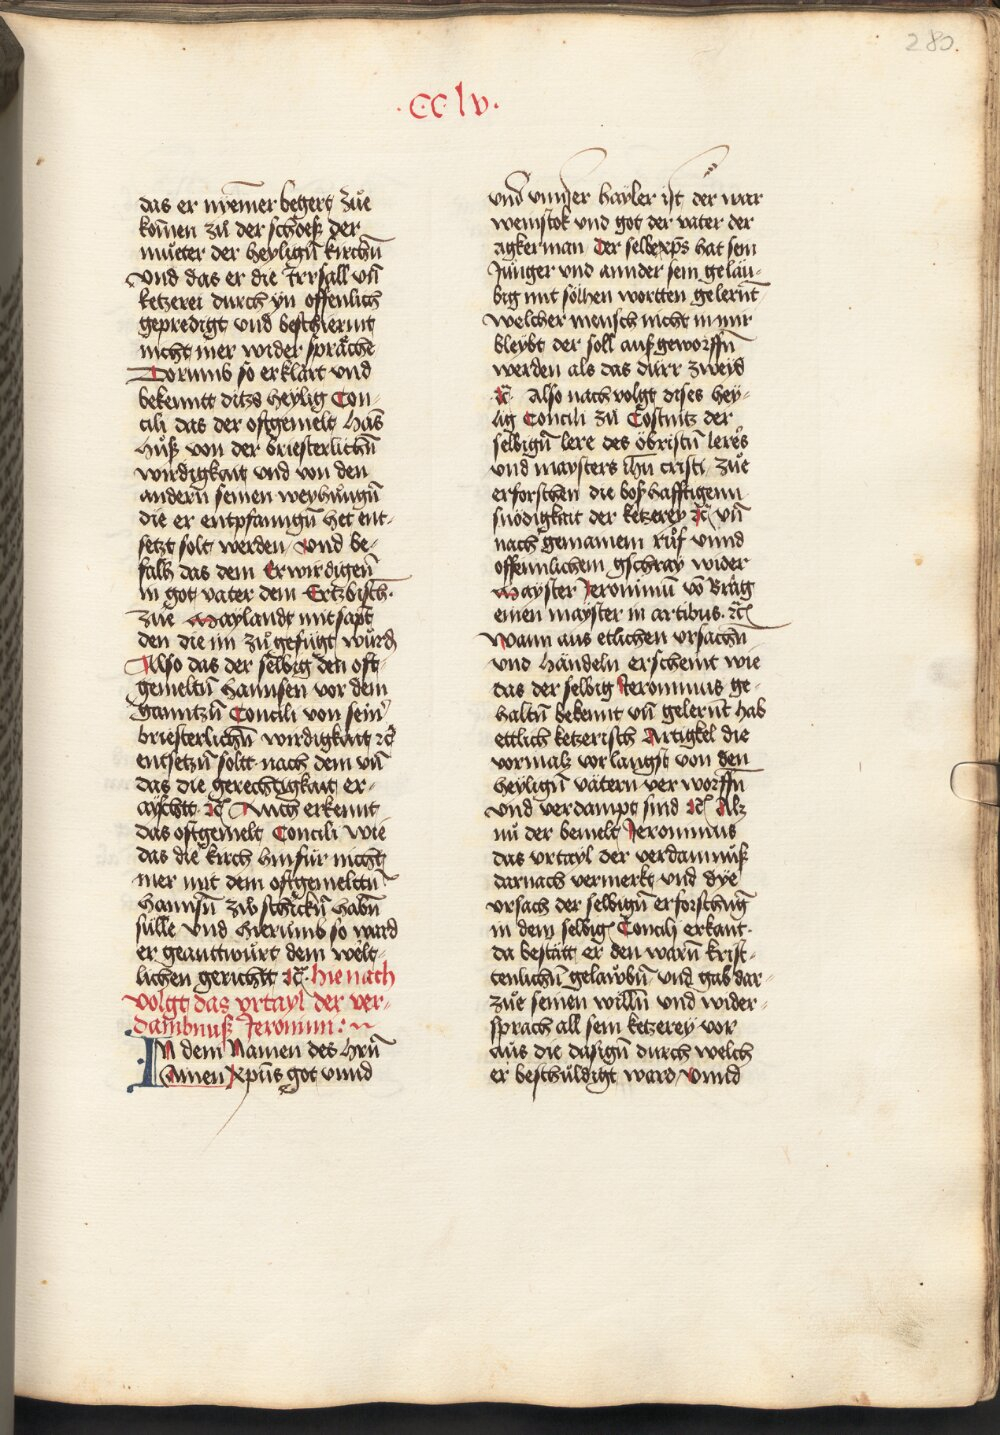 280.
·CClv·
das er nyemer begert zuͤe
kom̄en zů der schoeß der
muͤter der heylign̄ kirchn̄
vnd das er die Irrsall vn̄
ketzerei durch yn offenlich
gepredigt vnd beschiermt
nicht mer wider spräche
Dorumb so erklärt vnd
bekenntt ditzs heylig Con-
cili das der oftgemelt Hans
Huß von der briesterlichn̄
wirdigkait vnd von den
andern seinen weyhungn̄
die er entpfanngn̄ het ent-
setzt solt werden vnd be-
falh das dem Erwirdigen̄
in got vater dem Ertzbisch.
zuͤe Maylandt mit sapt
den die im zů gefügt wurd
Also das der selbig den oft-
gemeltn̄ hannsen vor dem
ganntzn̄ Concili von sein
briesterlichn̄ wirdigkait ꝛc̄
entsetzn̄ soltt nach dem vn̄
das die gerechtigkait er-
aischtt ꝛc̄ Auch erkennt
das oftgemelt Concili wie
das die kirch hinfür nicht
mer mit dem oftgemelttn̄
hannsn̄ zw schickn̄ habn̄
sülle vnd hierumb so ward
er geanttwurt dem welt-
lichen gerichtt ꝛc̄ hie nach
volgt das vrtayl der ver-
dambnuß Jeronimi:
In dem Namen des hrn̄
Amen Xpūs got vnnd
vnd vnnser hayler ist der war
weinstok vnd got der vater der
agkerman Der selbe xp̄s hat sein
Junger vnd annder sein geläu-
big mit sölhen wortten gelernt
welcher mensch nicht in mir
bleybt der soll auß geworffn̄
werden als das dürr zweyd
ꝛc̄ Also nach volgt dises hey-
lig Concili zů Costnitz der
selbign̄ lere des öbristn̄ lerers
vnd maysters ihū cristi zuͤe
erforschen die boßhafftigenn
snödigkait der ketzerey ꝛc̄ vn̄
nach gemainem růf vnnd
offennlichem gschray wider
Mayster Jeronimū vō Brag
einen mayster in artibus ꝛc̄
Wann aus etlichen vrsachn̄
vnd händeln erscheint wie
das der selbig Jeronimus ge-
haltn̄ bekennt vn̄ gelernt hab
ettlich ketzerisch Artigkel die
vormals vor langst von den
heylign̄ vätern verworffn̄
vnd verdampt sind ꝛc̄ Alz
nů der bemelt Jeronimus
das vrtayl der verdamnuß
darnach vermerkt vnd dye
vrsach der selbign̄ erforschūg
in dem selbiḡ Concilj erkant.
da bestätt er den warn̄ krist-
tenlichn̄ gelawbn̄ vnd gab dar-
zuͤe seinen willn̄ vnd wider-
sprach all sein ketzerey vor
aus die dasign̄ durch welch
er beschuldigt ward vnnd